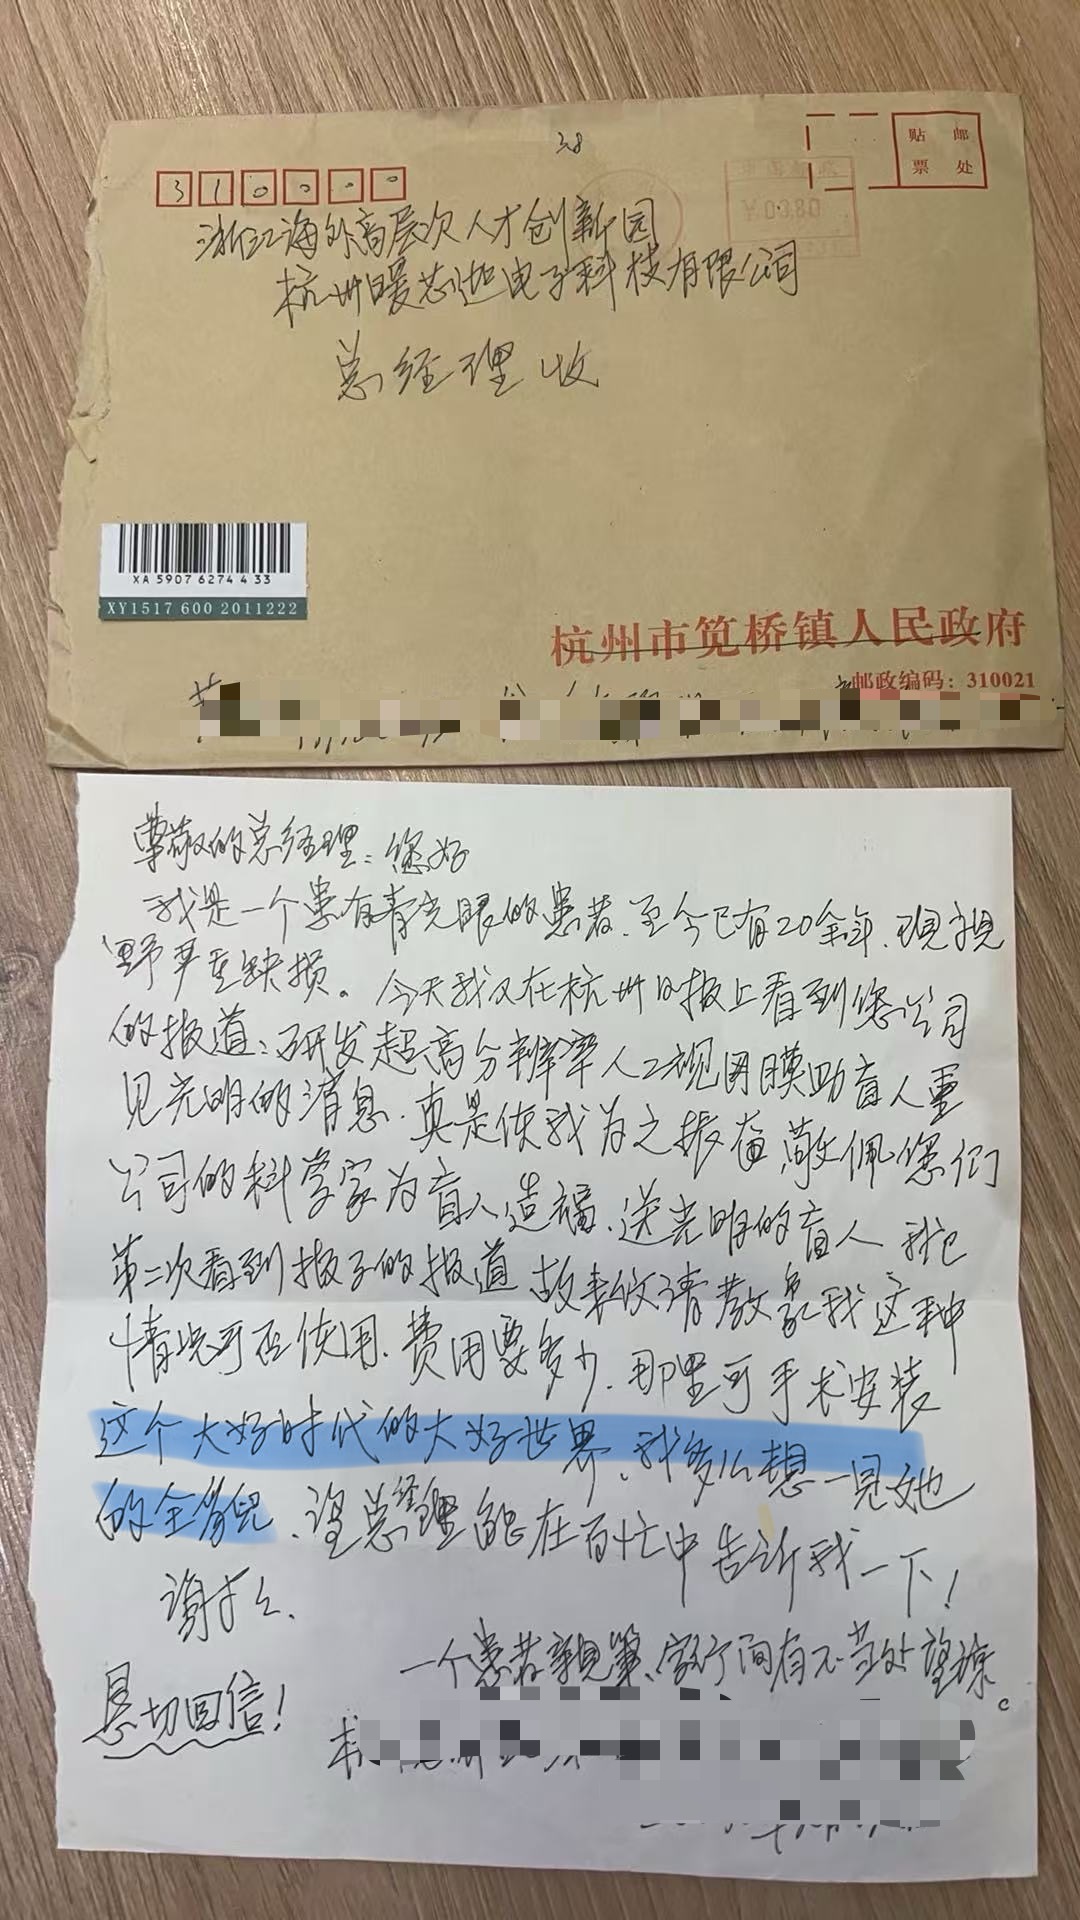 38
贴 邮
票 处
310000
¥00.80
浙江海外高层次人才创新园
杭州暖芯迦电子科技有限公司
总经理 收
XA 5907 6274 4 33
XY1517 600 2011222
杭州市笕桥镇人民政府
邮政编码：310021
尊敬的总经理：您好
我是一个患有青光眼的患者、至今已有20余年、现视
野严重缺损。今天我又在杭州日报上看到您公司
的报道：研发超高分辨率人工视网膜助盲人重
见光明的消息、真是使我为之振奋敬佩您们
公司的科学家为盲人造福、送光明的盲人 我已
第二次看到报子的报道 故来信请教象我这种
情况可否使用、费用要多少、那里可手术安装
这个大好时代的大好世界、我多么想一见她
的全貌、望总经理能在百忙中告诉我一下！
谢了、
一个患者亲笔、字行间有不当处望谅。
恳切回信！